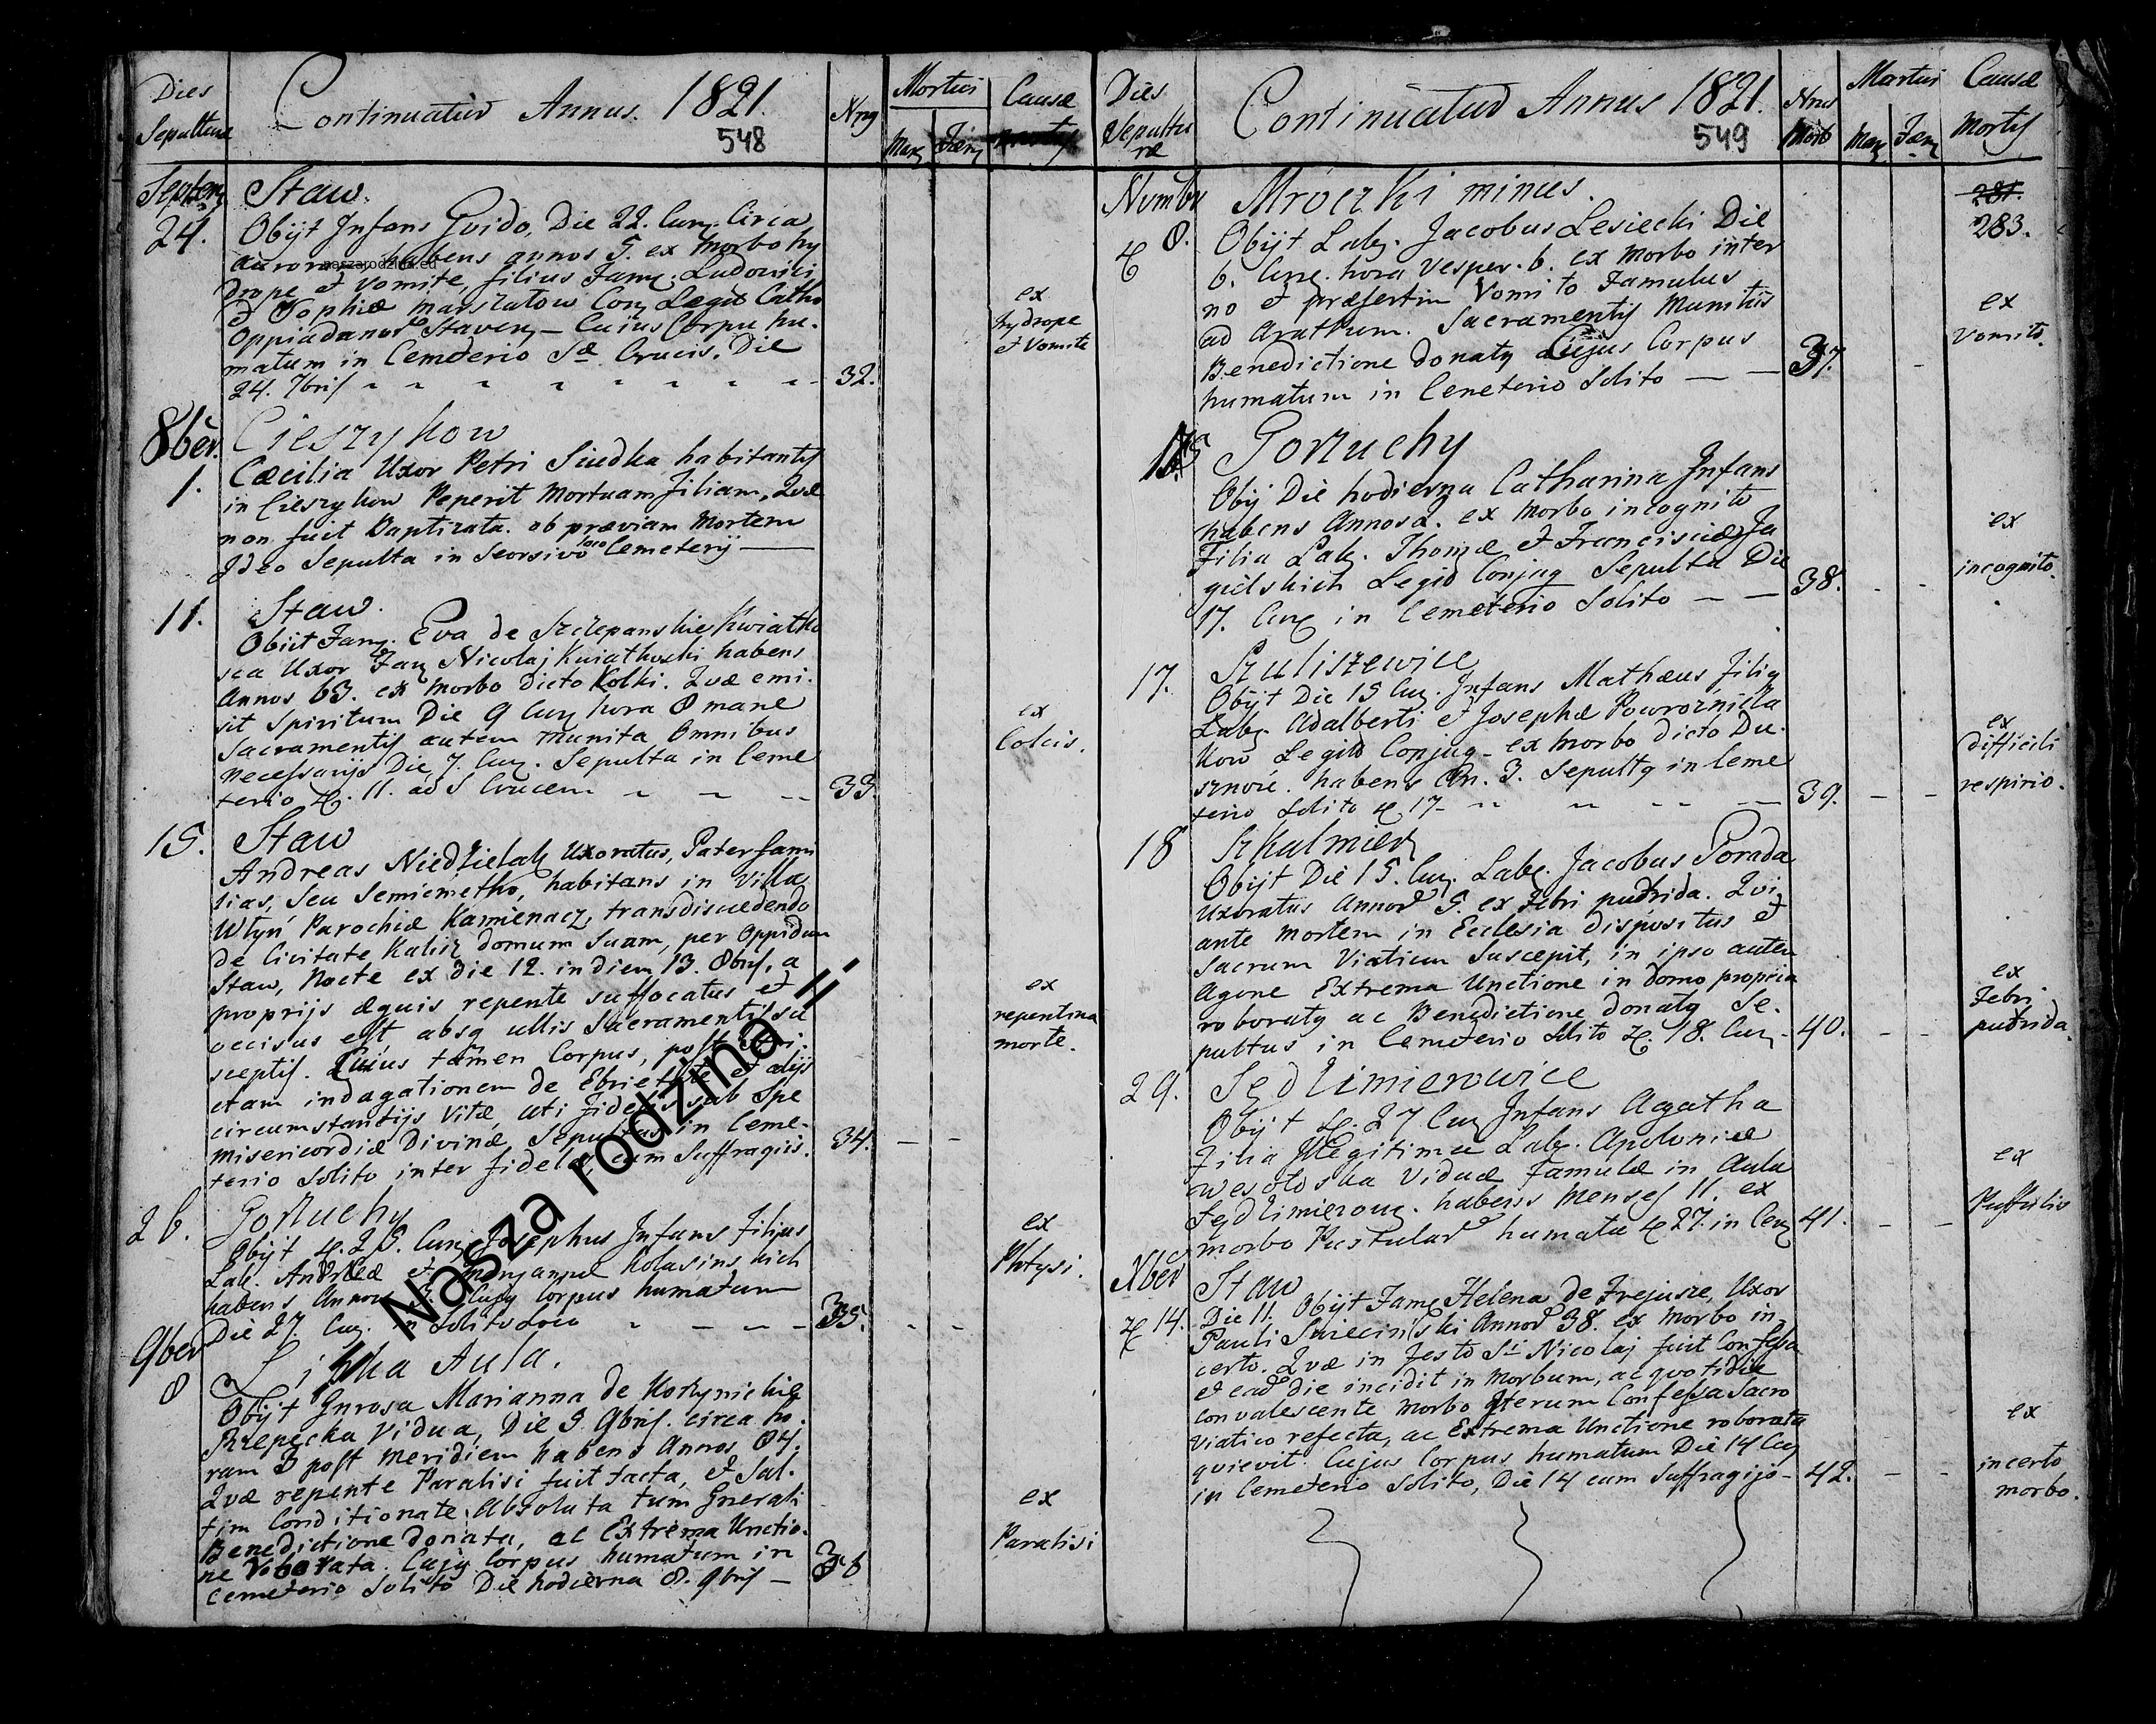 Dies
Sepulturæ
Continuatur Annus. 1821.
548
Nrus
Mortui
Masc
Fæm
Causæ
Septem
24.
Staw.
Obijt Infans Guido, Die 22. Curr. Circa
Auroram habens annos 5. ex Morbo hy
drope et Vomite, filius Fam. Ludovici
et Sophiæ
Oppidanor Staven. – Cuius Corpu hu.
matum in Cemeterio Sæ Crucis. Die
24. 7bris
32.
ex
hydrope
et Vomite
8ber.
1.
Cieszykow
Cæcilia Uxor Petri Siudka habitantis
in Cieszykow Peperit Mortuam filiam, Quæ
non fuit Baptizata. ob præviam Mortem
Ideo Sepulta in Seorsivo loco Cemeterij
11.
Staw.
Obiit Fam. Eva de Szczepanskie Kwiatko
sca Uxor Fam Nicolaj Kwiatkoski habens
Annos 63. ex Morbo Dicto Kolki. Quæ emi.
sit Spiritum Die 9 Curr hora 8 mane
Sacramentis autem munita Omnibus
necessarijs Die 7. Curr. Sepulta in Ceme
terio 11. ad S Crucem
33.
ex
Colcis.
15.
Staw
Andreas Niedzielak Uxoratus, Pater fami
lias, Seu Semicmetho, habitans in Villa
Włyń Parochiæ Kamienacz, transdiscedendo
de Civitate Kalisz domum Suam, per Oppidum
Staw, Nocte ex die 12. in diem 13. 8bris, a
proprijs æquis repente suffocatus et
occisus est, absq ullis Sacramentis su
sceptis. Cuius tamen Corpus, post stri.
ctam indagationem de Ebrietate et alijs
circumstantijs Vitæ, uti fidelis sub Spe
misericordiæ Divinæ, Sepultus in Ceme-
terio Solito inter fideles, cum Suffragijs.
34.
ex
repentina
morte.
26.
Gorzuchy
Obijt 25. Curr Josephus Infans Filius
Lab. Andreæ et Kolasinskich
habens Annos 3. Cujus Corpus humatum
Die 27. Curr. in Solito Loco
35.
ex
Phtysi.
9ber
8
Aula.
Obijt Gnrosa Marianna de
Rzepecka Vidua, Die 5 9bris. circa ho.
ram 3 post Meridiem habens Annos 84.
Quæ repente Paralisi fuit tacta, et Sal.
tim Conditionate Absoluta tum Gnerali
Benedictione donata, ac Extrema Unctio.
ne roborata. Cujus Corpus humatum in
Cemeterio Solito Die hodierna 8. 9bris
36
ex
Paralisi
Dies
Sepultu
ræ
Continuatur Annus 1821.
549
Nrus
Mort
Mortui
Masc
Fæm
Causæ
Mortis
281.
283.
Nvmbr
8.
Mroczki minus.
Obijt Lab. Jacobus Lesiecki Die
6. Curr. hora Vesper. 6. ex Morbo inter
no et præsertim Vomito Famulus
ad Arathum. Sacramentis Munitus
Benedictione Donatus Cujus Corpus
humatum in Cemeterio Solito
37.
ex
Vomito.
Gorzuchy
Obij Die hodierna Catharina Infans
habens Annos 2. ex Morbo incognito
Filia Lab. Thomæ et Franciscæ Ja
gielskich Legit Conjug Sepulta Die
17. Curr in Cemeterio Solito
38.
ex
incognito.
17.
Szuliszewice
Obijt Die 15 Curr. Infans Mathæus filius
Lab. Adalberti et Josephæ Powrożnicka
kow Legit Conjug. ex Morbo dicto Du.
sznośc. habens An. 3. Sepultus in Ceme
terio Solito 17.
39.
ex
difficili
respirio.
18
Szkulmierz
Obijt Die 15. Curr. Lab. Jacobus Porada
Uxoratus Annor 5. ex Febri putrida. Qui
ante mortem in Ecclesia dispositus et
Sacrum Viaticum Suscepit, in ipso autem
Agone Extrema Unctione in domo propria
roboratus ac Benedictione donatus Se.
pultus in Cemeterio Solito 18. Curr.
40.
ex
Febri
putrida.
29.
Sędzimierowice
Obijt 27 Curr Infans Agatha
Filia Illegitima Lab. Apoloniæ
Wesołoska Viduæ Famulæ in Aula
Sędzimierow. habens Menses 11. ex
morbo Pustular humata 27. in Cem
41.
ex
Pustulis
Xber
14.
Staw
Die 11. Obijt Fam Helena de Frejusze, Uxor
Pauli Swiecinski Annor 38. ex Morbo in.
certo. Quæ in Festo Sti Nicolaj fuit Confessa
et ead die incidit in Morbum, ac quotidie
convalescente Morbo Iterum Confessa Sacro
Viatico refecta, ac Extrema Unctione roborata
quievit. Cujus Corpus humatum Die 14 Curr
in Cemeterio Solito, Die 14 cum Suffragijs
42.
ex
incerto
morbo.
naszarodzina.eu
Nasza rodzina II